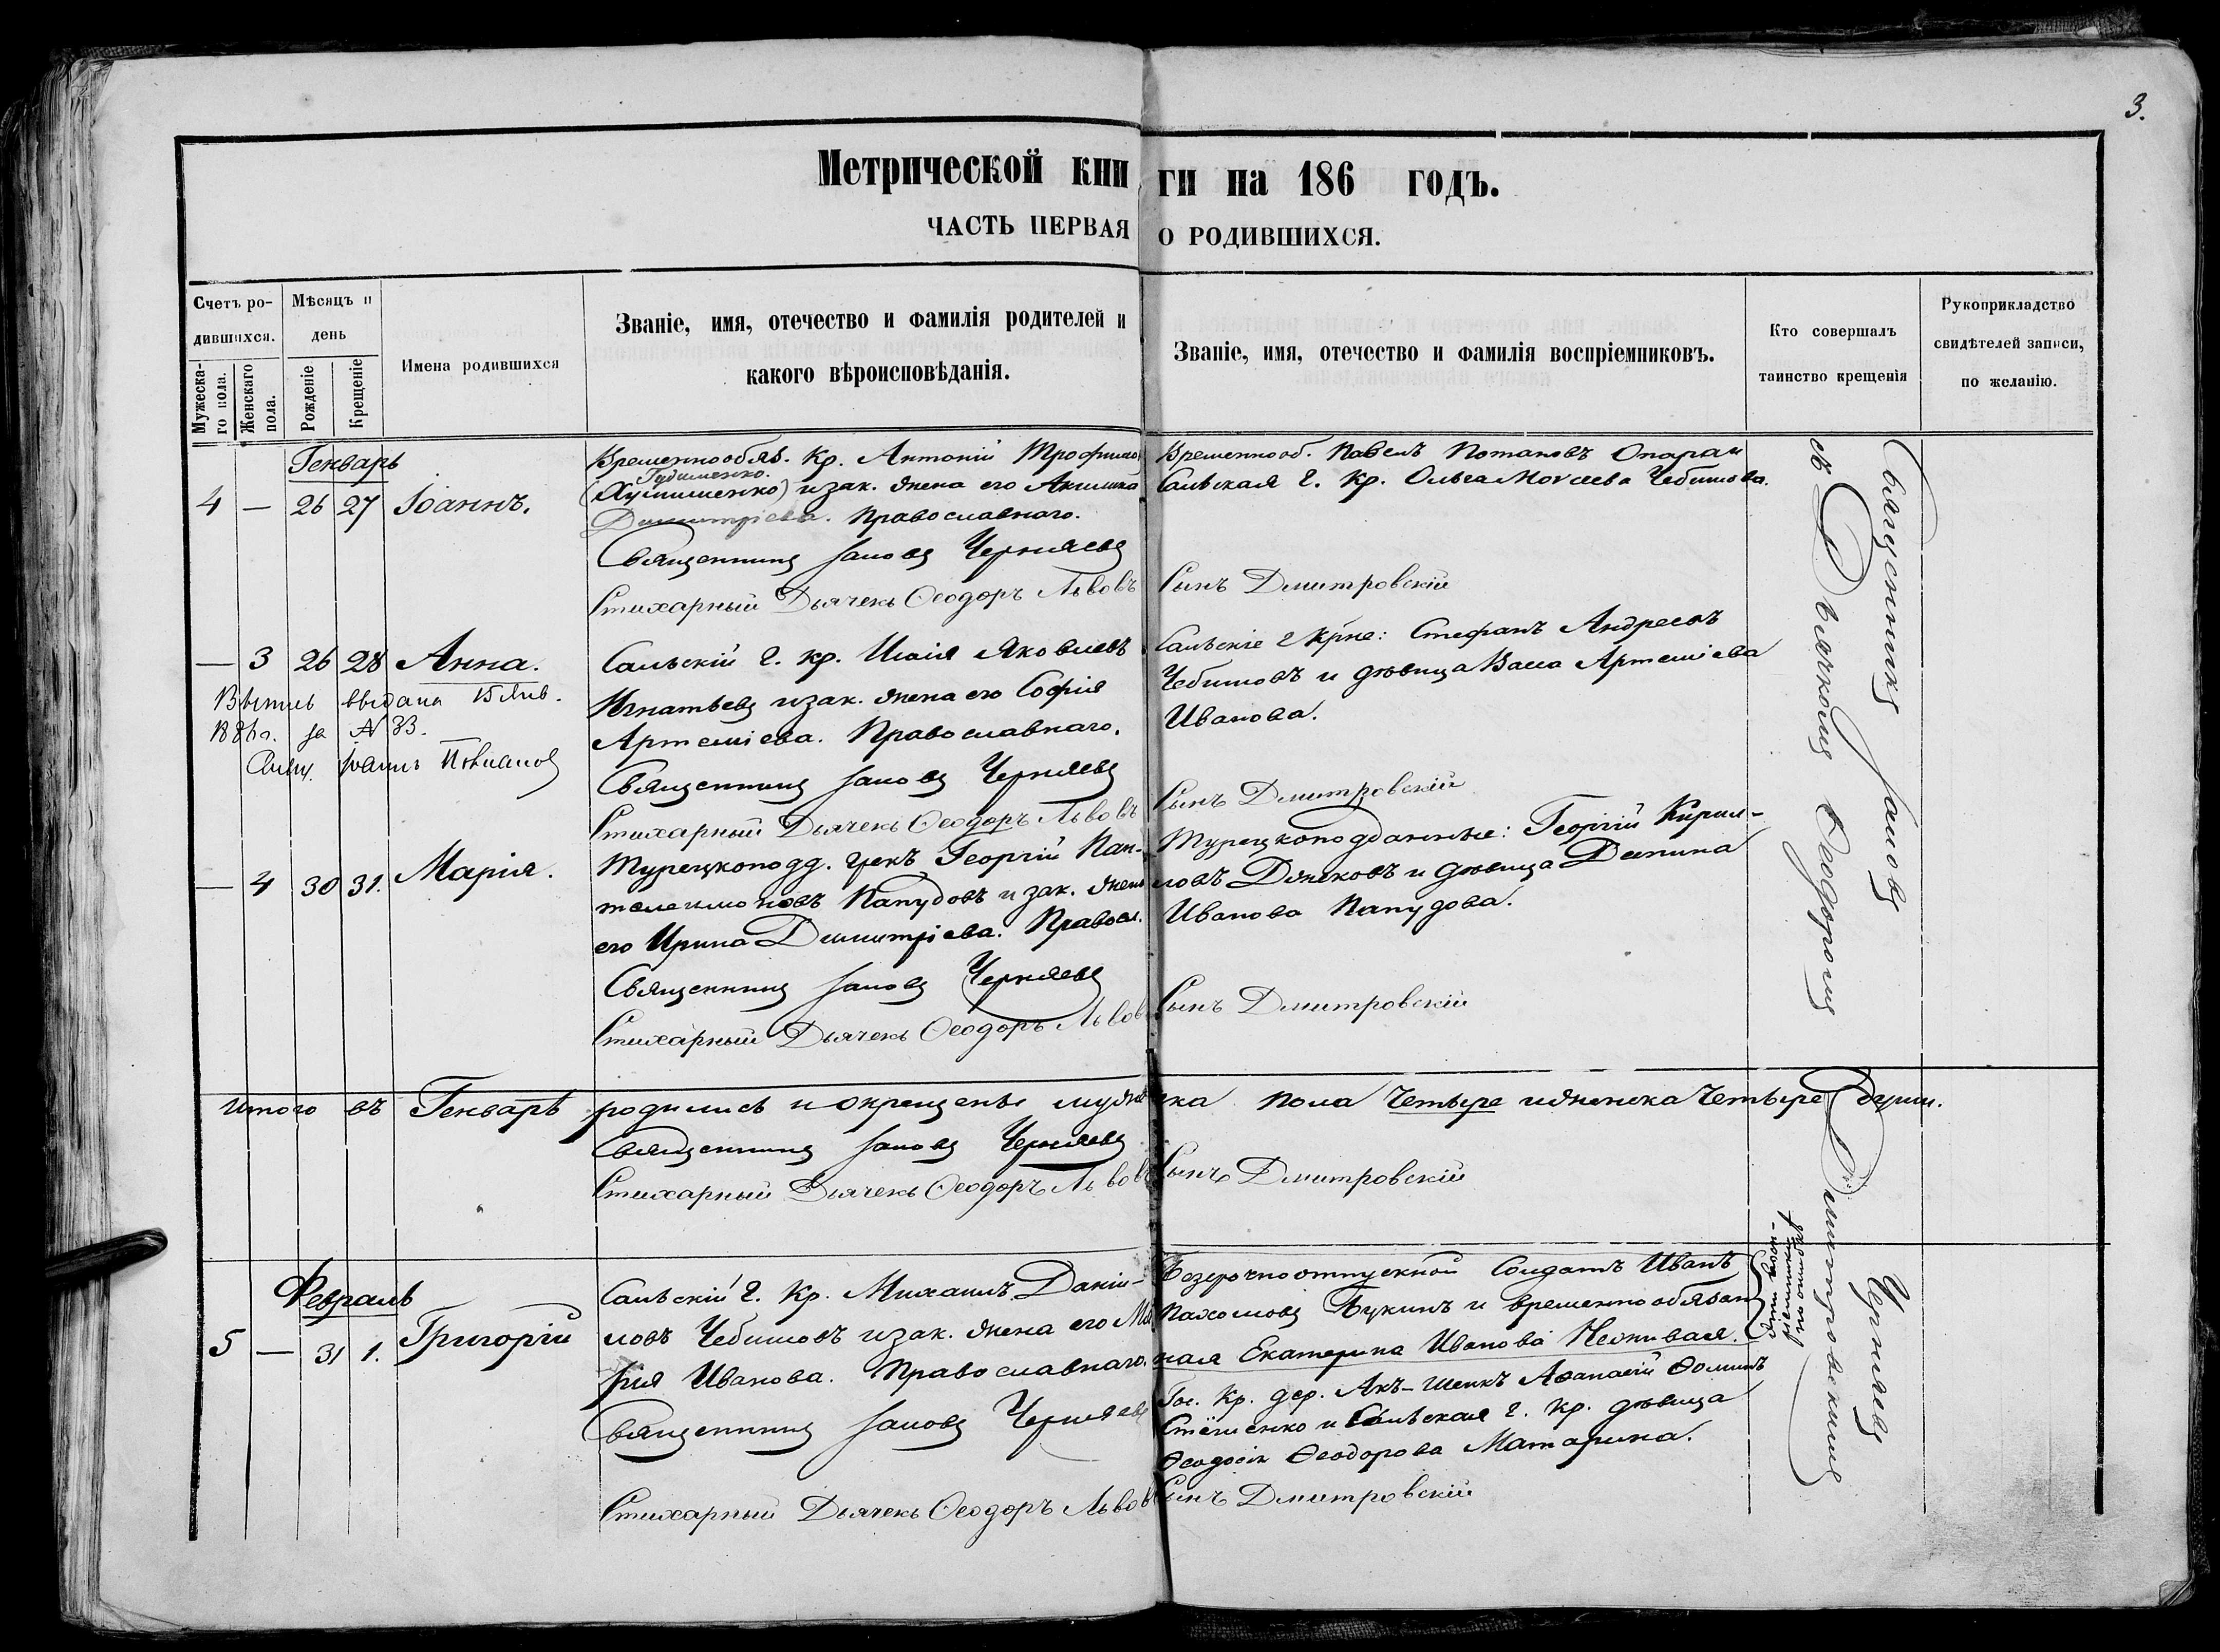 3.
Метрической кни ги на 186 годъ.
ЧАСТЬ ПЕРВАЯ О РОДИВШИХСЯ.
Счетъ ро-
дившихся.
Мужеска-
го пола.
Женскаго
пола.
Мѣсяцъ и
день
Рожденіе
Крещеніе
Имена родившихся
Званіе, имя, отечество и фамилія родителей и
какого вѣроисповѣданія.
Званіе, имя, отечество и фамилія воспріемниковъ.
Кто совершалъ
таинство крещенія
Рукоприкладство
свидѣтелей записи,
по желанію.
Генварь
4 — 26 27 Іоаннъ.
Временнообяз. Кр. Антоній Трофимо
Гудименко.
изак. жена его Акилина
Димитріева. Православнаго.
Священникъ Іаковъ Черняевъ
Стихарный Дьячекъ Ѳеодоръ Львовъ
Временнооб. Павелъ Потаповъ
Сальская г. Кр. Ольга Моѵсеева Чебитова.
Сынъ Дмитровскій
— 3 26 28 Анна.
выдана Янв.
1886г. за № 33.
Свящ. Іоаннъ
Сальскій г. кр. Илія Яковлевъ
Игнатьевъ изак. жена его Софія
Артеміева. Православнаго.
Священникъ Іаковъ Черняевъ
Стихарный Дьячекъ Ѳеодоръ Львовъ
Сальскіе г крне: Стефанъ Андреевъ
Чебитовъ и дѣвица Васса Артеміева
Иванова.
Сынъ Дмитровскій
— 4 30 31. Марія.
Турецкоподд. грекъ Георгій Пан-
телеимоновъ Папудовъ и зак. жена
его Ирина Димитріева. Правосл.
Священникъ Іаковъ Черняевъ
Стихарный Дьячекъ Ѳеодоръ Львов
Турецкоподданные: Георгій Кирил-
ловъ Джековъ и дѣвица Деспина
Иванова Папудова.
Сынъ Дмитровскій
Итого въ Генварѣ родились и окрещены мужеска пола Четыре иженска Четыре души.
Священникъ Іаковъ Черняевъ
Стихарный Дьячекъ Ѳеодоръ Львовъ Сынъ Дмитровскій
Февраль
5 — 31 1. Григорій
Сальскій г. Кр. Михаилъ Даніи-
ловъ Чебитовъ изак. жена его Ма
рія Иванова. Православнаго.
Священникъ Іаковъ Черняевъ
Стихарный Дьячекъ Ѳеодоръ Львов
Безсрочноотпускной Солдатъ Иванъ
Пахомовъ Букинъ и временнообязан
ная Екатерина Иванова Неживая.
Эти воспріемники по ошибкѣ
Гос. Кр. дер. Акъ-Шеихъ Аѳанасій Ѳоминъ
Стешенко и Сальская г. Кр. дѣвица
Ѳеодосія Ѳеодорова Матарина.
Сынъ Дмитровскій
Священникъ Іаковъ Черняевъ
съ Дьячкомъ Ѳеодоромъ Дмитровскимъ